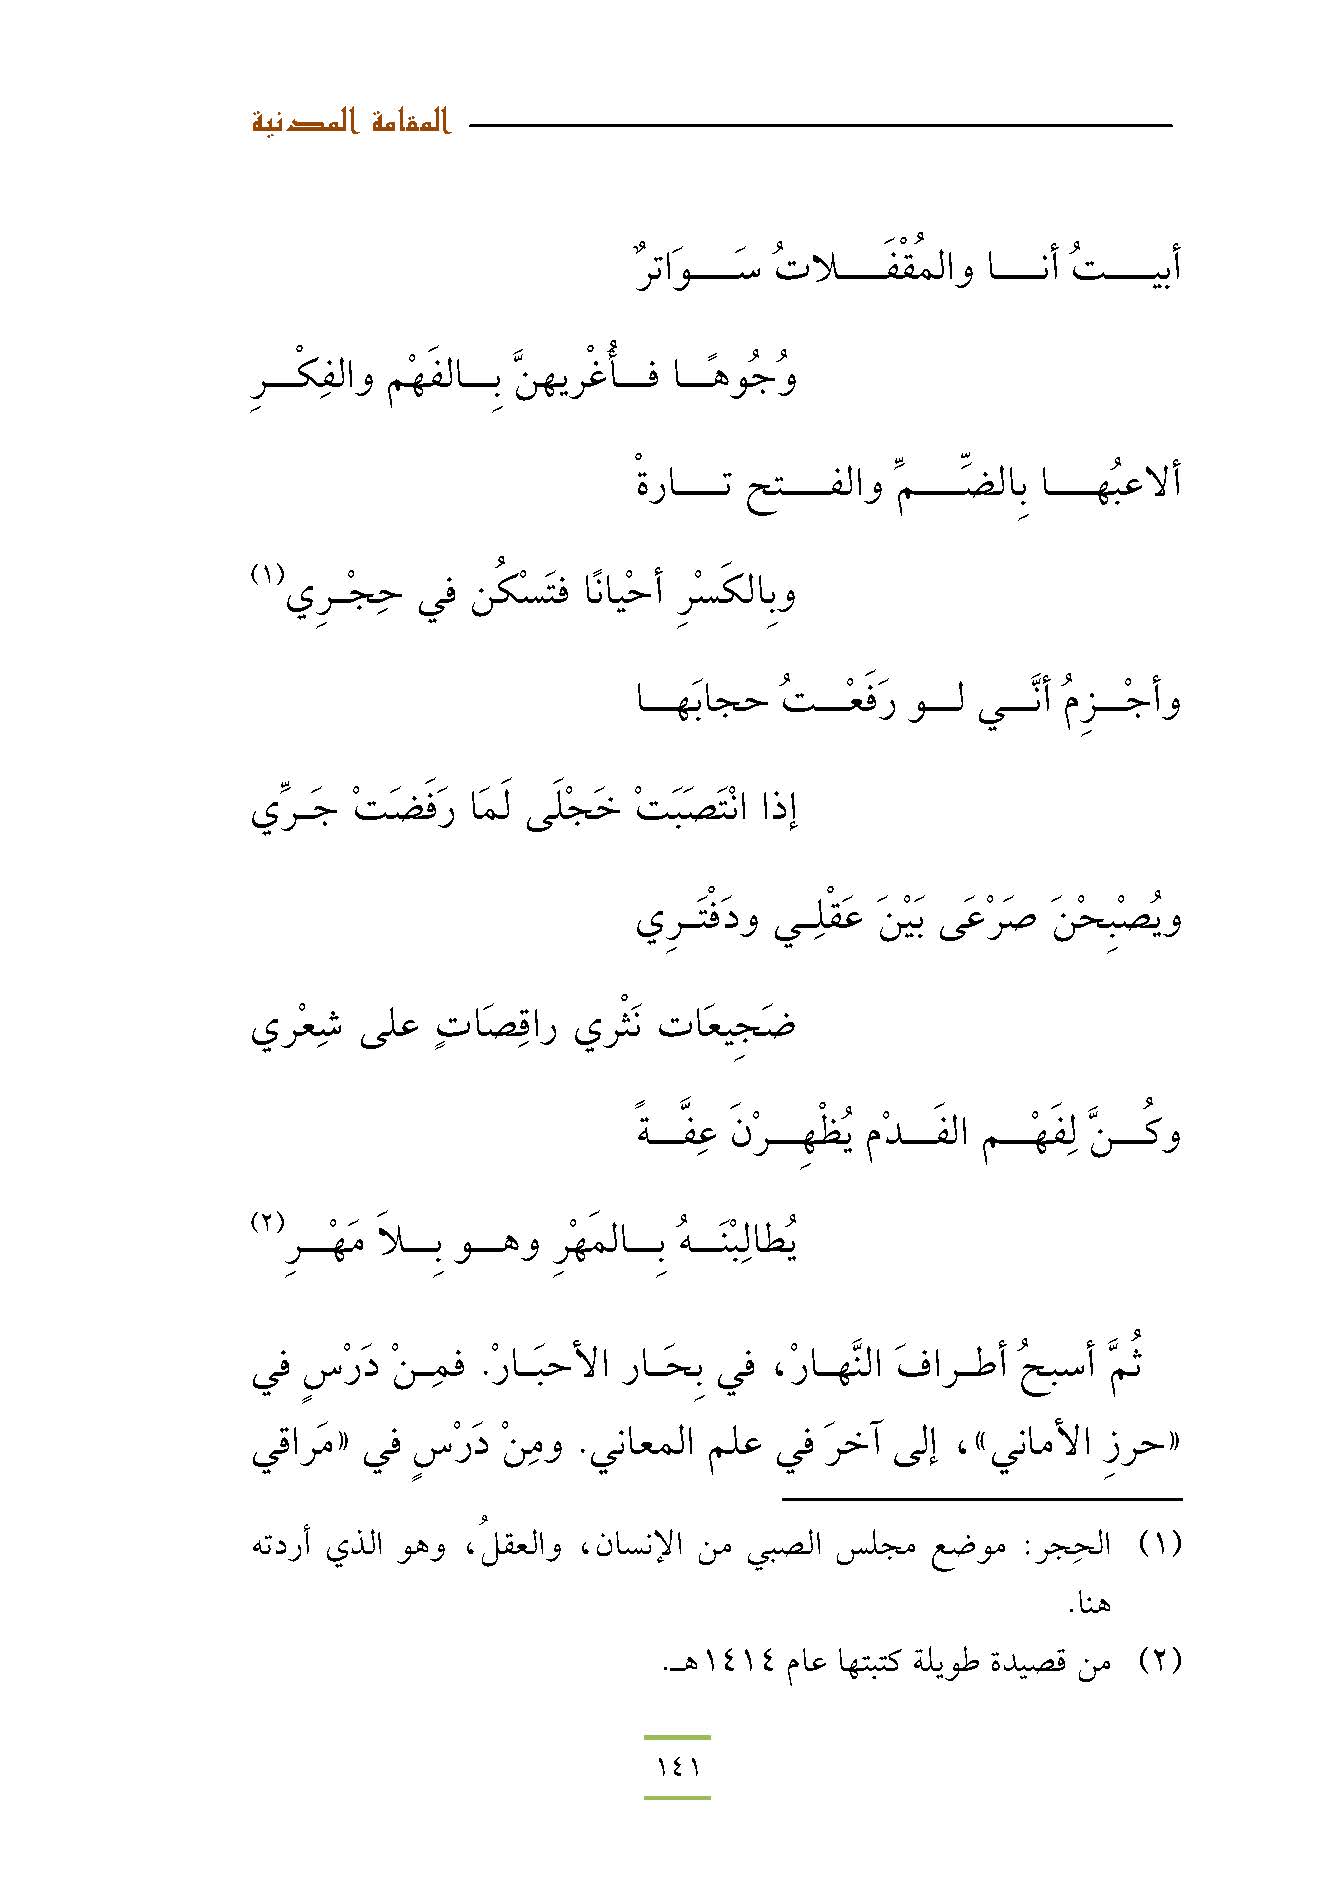 المقامة المدنية
أبيــتُ أنــا والمُقْفَــلاتُ سَــوَاترٌ
وُجُوهًـا فـأُغْريهنَّ بِـالفَهْم والفِكْـرِ
ألاعبُهــا بِالضِّــمِّ والفــتح تــارةْ
وبِالكَسْرِ أحْيانًا فتَسْكُن في حِجْـرِي(١)
وأجْـزِمُ أنَّـي لـو رَفَعْـتُ حجابَهـا
إذا انْتَصَبَتْ خَجْلَى لَمَا رَفَضَتْ جَـرِّي
ويُصْبِحْنَ صَرْعَى بَيْنَ عَقْلِـي ودَفْتَـرِي
ضَجِيعَات نَثْري راقِصَاتٍ على شِعْري
وكُــنَّ لِفَهْــم الفَــدْم يُظْهِــرْنَ عِفَّــةً
يُطالِبْنَــهُ بِــالمَهْرِ وهــو بِــلاَ مَهْــرِ(٢)
ثُمَّ أسبحُ أطـرافَ النَّهـارْ، في بِحَـار الأحبَـارْ. فمِـنْ دَرْسٍ في
«حرزِ الأماني»، إلى آخرَ في علم المعاني. ومِنْ دَرْسٍ في «مَراقي
(١) الحِجر: موضع مجلس الصبي من الإنسان، والعقلُ، وهو الذي أردته
هنا.
(٢) من قصيدة طويلة كتبتها عام ١٤١٤هـ.
١٤١